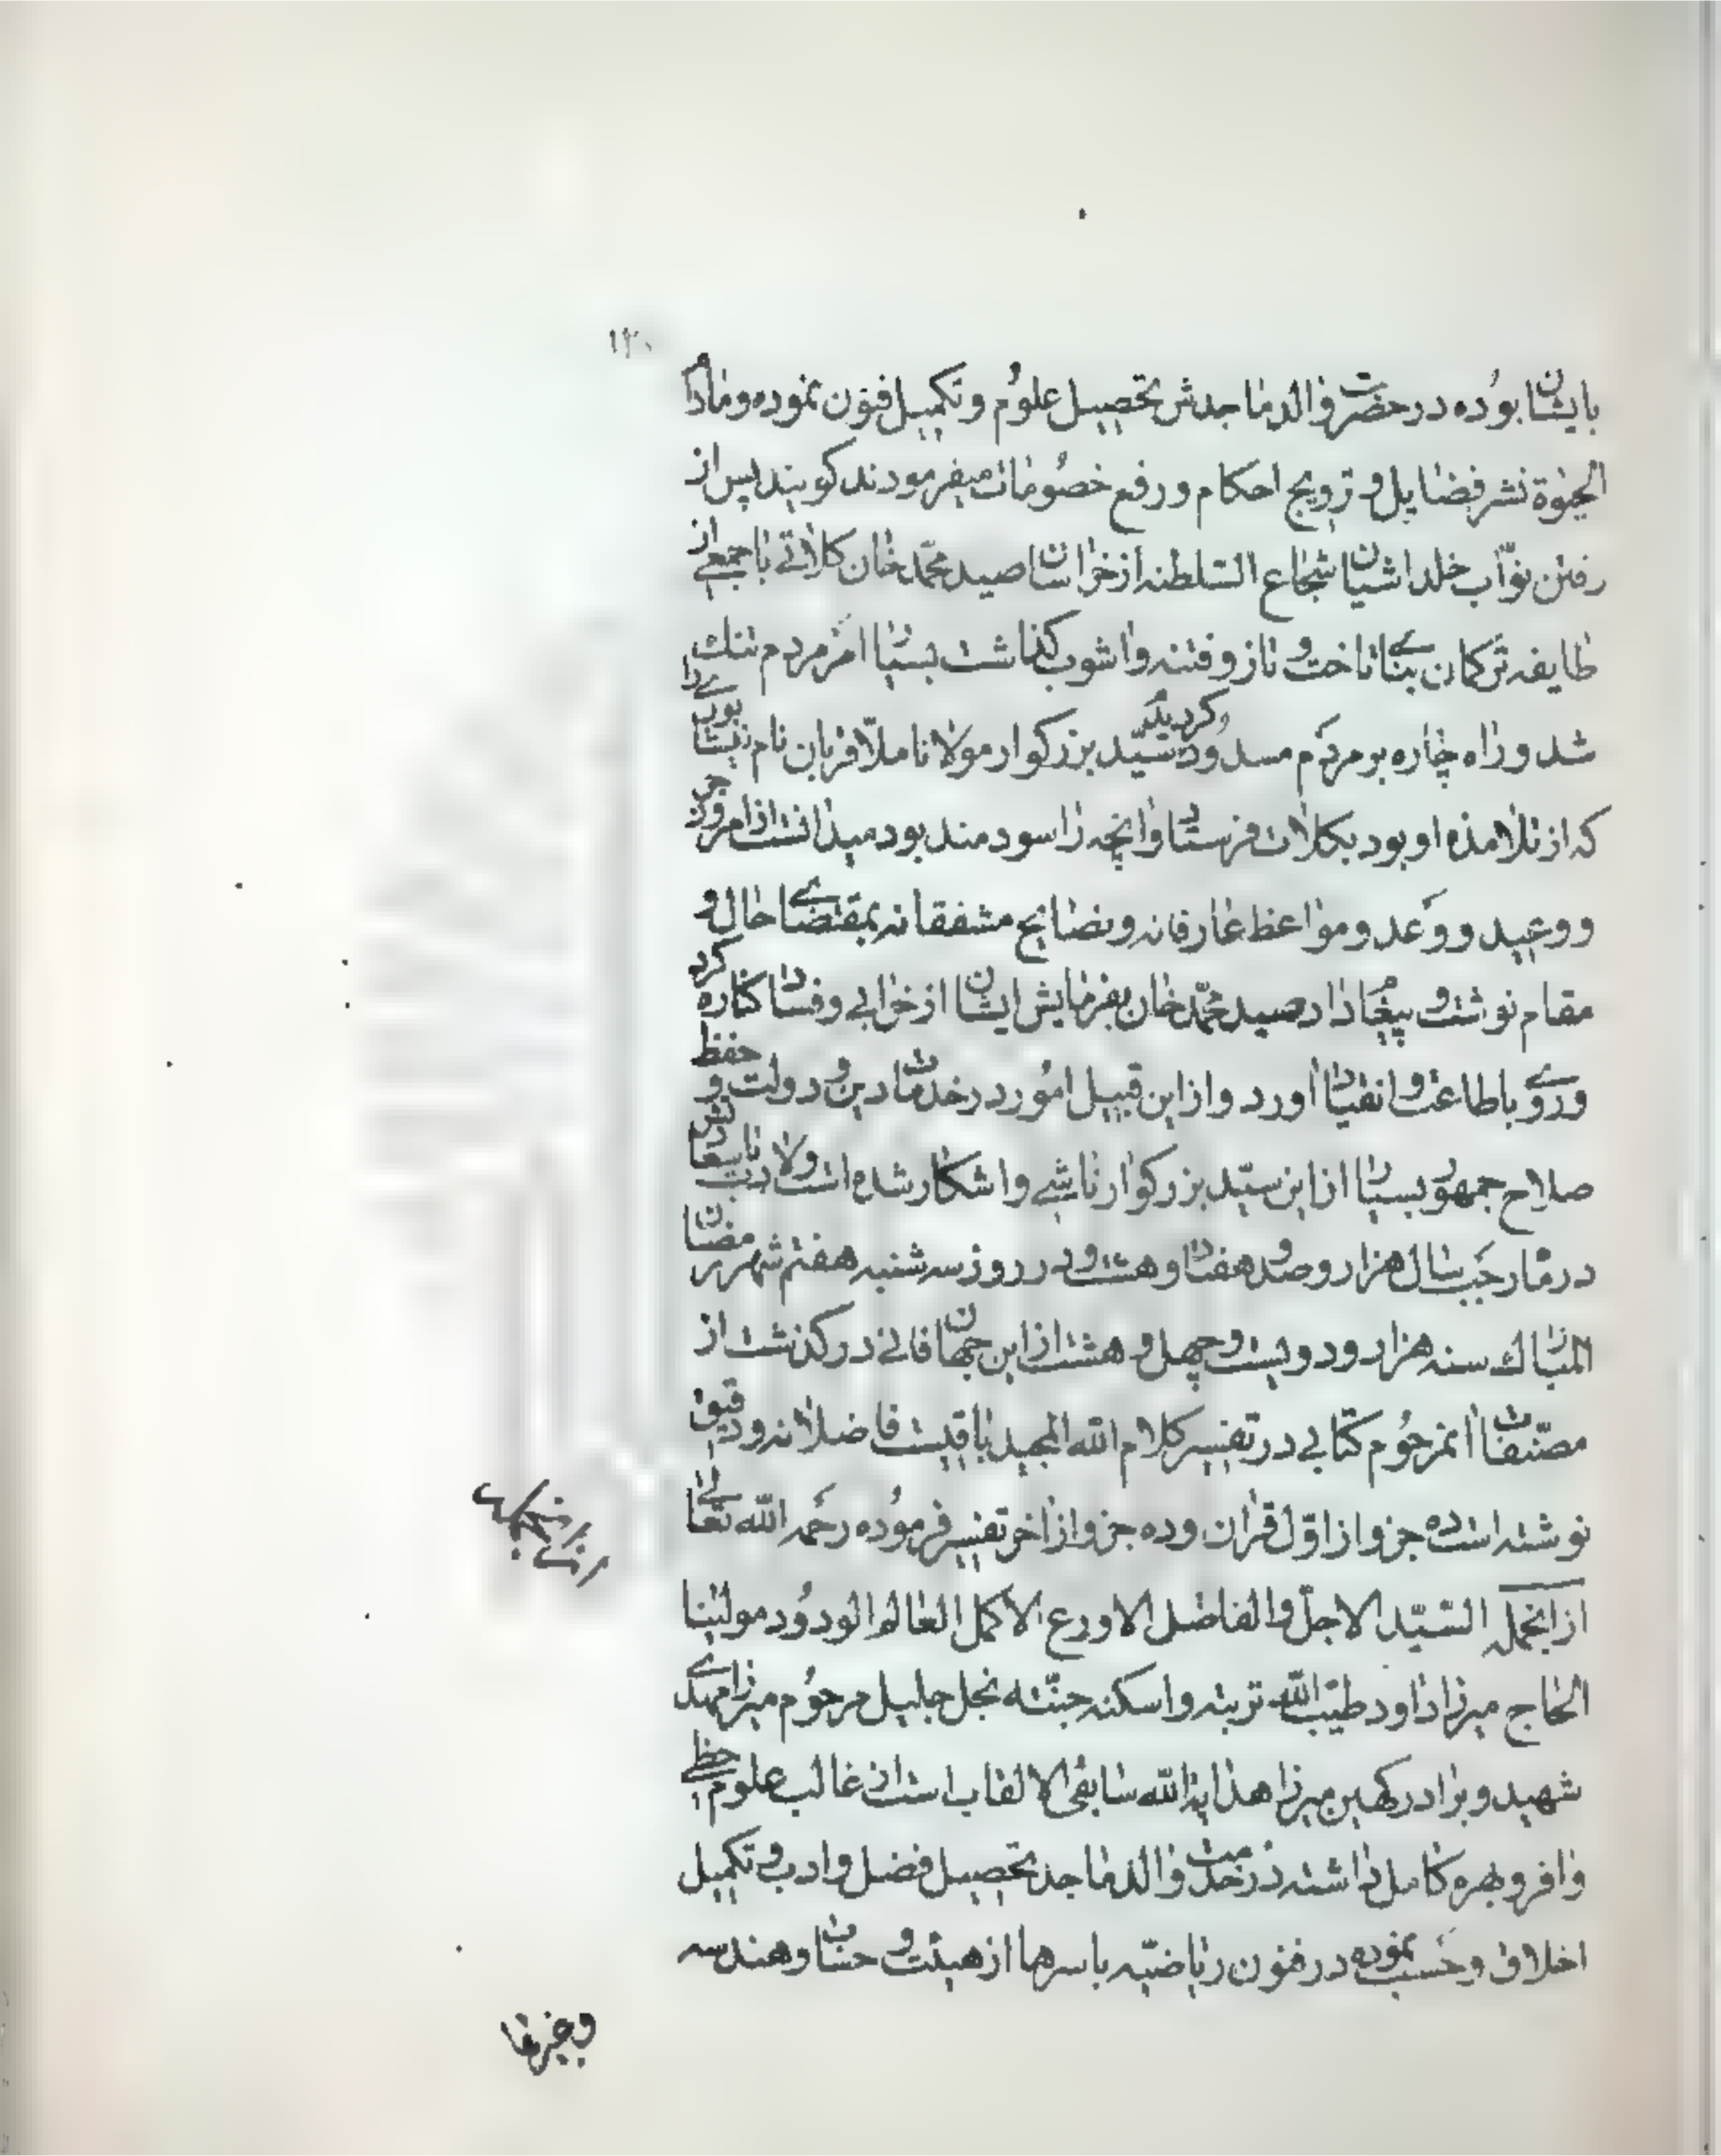 ۱۲۰
بایشان بوده در حضرت والد ماجدش تحصیل علوم و تکمیل فنون نموده و مادام
الحیوة نشر فضایل و ترویج احکام و رفع خصومات میفرمودند کویند پس از
رفتن نوّاب خلداشیان شجاع السلطنه از خراسان صید محمّد خان کلاتے با جمعے از
طایفه ترکمان بنای تاخت و تاز و فتنه و اشوب کذاشت بسیار امر مردم تنک
شد و راه چاره بر مردم مسدود کردید سیّد بزرکوار مولانا ملّا قربان نام نیشابوریرا
که از تلامذه او بود بکلات فرستاد و انچه را سودمند بود میدانست از امر و زجر
و وعید و وعد و مواعظ عارفانه و نصایح مشفقانه بمقتضای حال و
مقام نوشت و پیغام داد صید محمّد خان بفرمایش ایشان از خرابی و فساد کناره کرد
و روی باطاعت و انقیاد اورد و از این قبیل امور در خدمات دین و دولت و حفظ
صلاح جمهور بسیار از این سیّد بزرکوار ناشے و اشکار شده است ولادت با سعادتش
در ماه رجب سال هزار و صد و هفتاد و هشت و در روز سه شنبه هفتم شهر رمضان
المبارک سنه هزار و دویست و چهل و هشت از این جهان فانی درکذشت از
مصنّفات انمرحوم کتابی در تفسیر کلام الله المجید باقیست فاضلانه و دقیق
نوشته است ده جزو از اوّل قران و ده جزو از اخر تفسیر فرموده رحمه الله تعالی
از انجمله السّیّد الاجلّ و الفاضل الاورع الاکمل العالم الودود مولینا
الحاج میرزا داود طیّب الله تربته و اسکنه جنّته نجل جلیل مرحوم میرزا مهدی
شهید و برادر کهین میرزا هدایة الله سابق الالقاب است از غالب علوم حظّے
وافر و بهره کامل داشته در خدمت والد ماجد تحصیل فضل و ادب و تکمیل
اخلاق و حسب نموده در فنون ریاضیّه باسرها از هیئت و حساب و هندسه
و غیرها